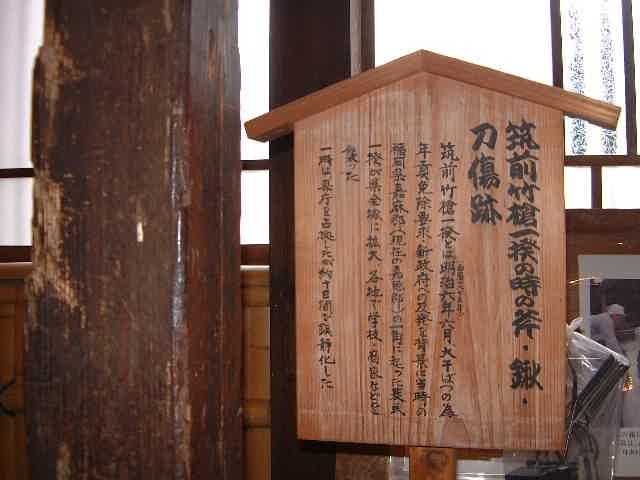 筑前竹槍一揆の時の斧・鍬・
刀傷跡
筑前竹槍一揆とは明治六年六月大干ばつの為
年貢免除要求、新政府への反発を背景に当時の
福岡県嘉麻郡(現在の嘉穂郡)の一角に起った農民
一揆が県全域に拡大 各地で学校、商家などを
襲った
一時は県庁を占拠したが約十日間で鎮静化した